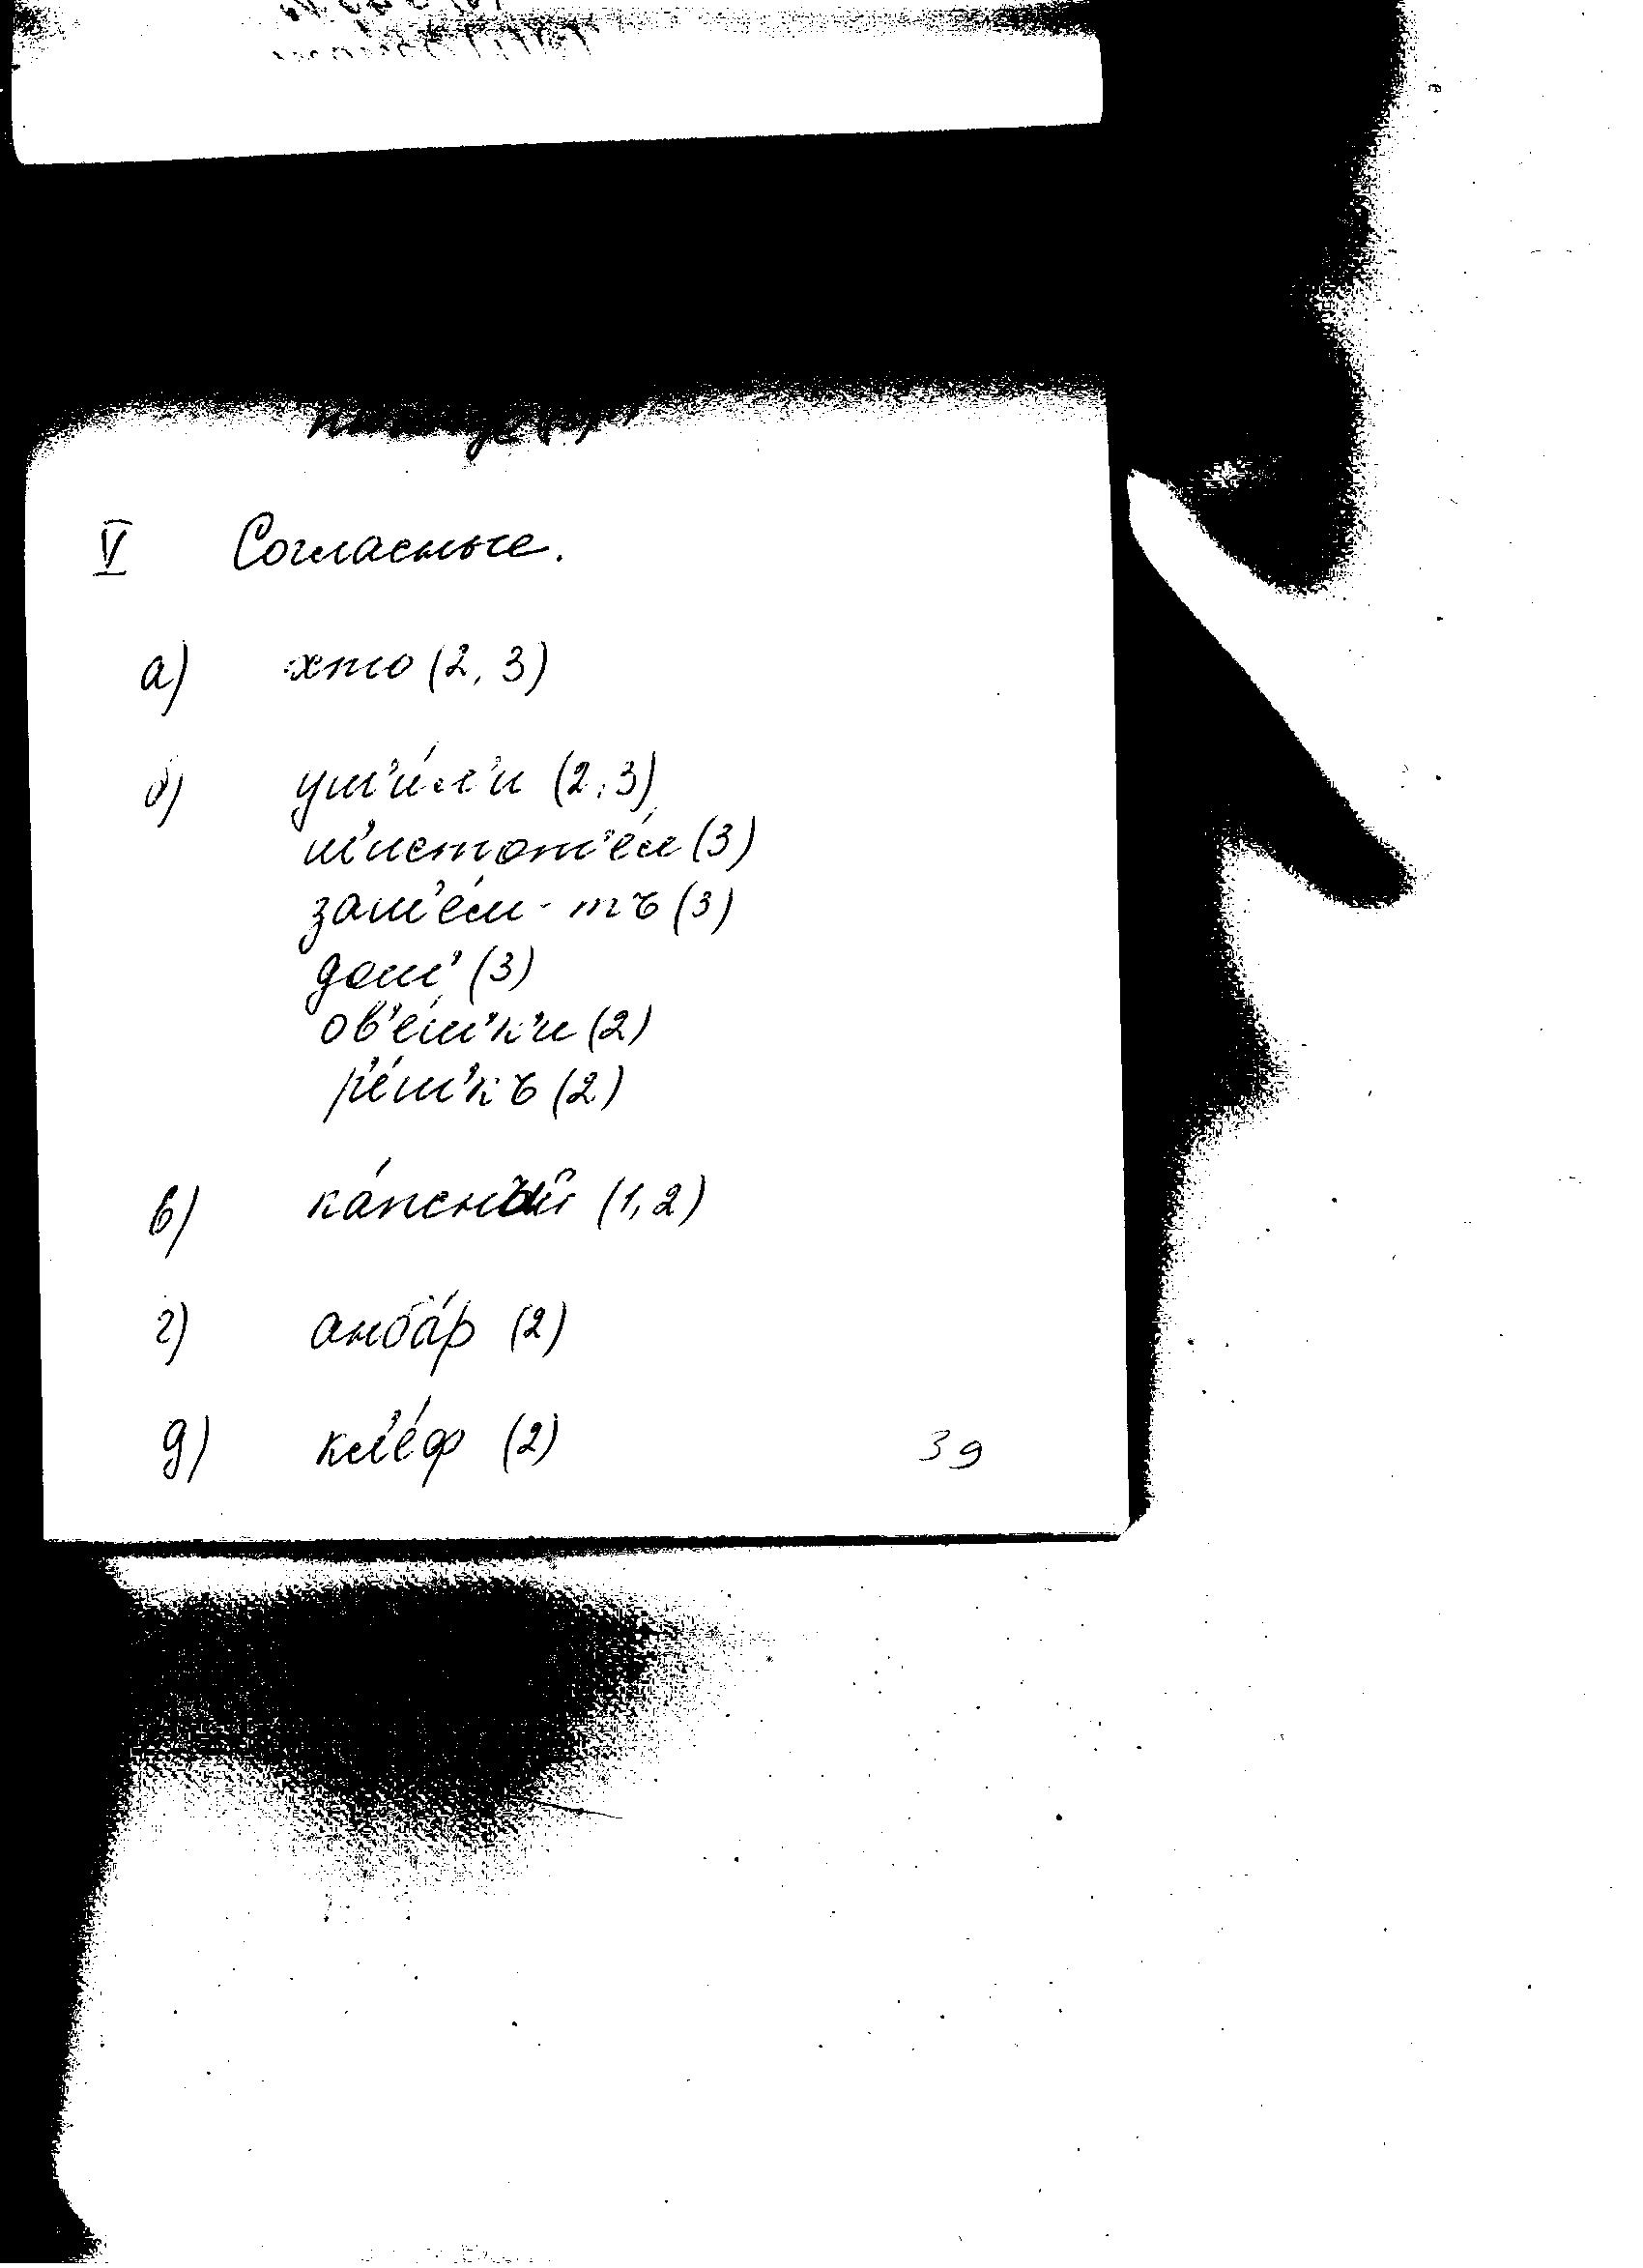 V Согласные.
а) хто (2, 3)
б) уш'и́л'и (2,3)
ш'истот'е́л (3)
заш'е́м-тъ (3)
дош' (3)
ов'е́ш'к'и (2)
р'е́ш'къ (2)
в) ка́псный (1,2)
г) анба́р (2)
д) кл'е́ф (2)
39